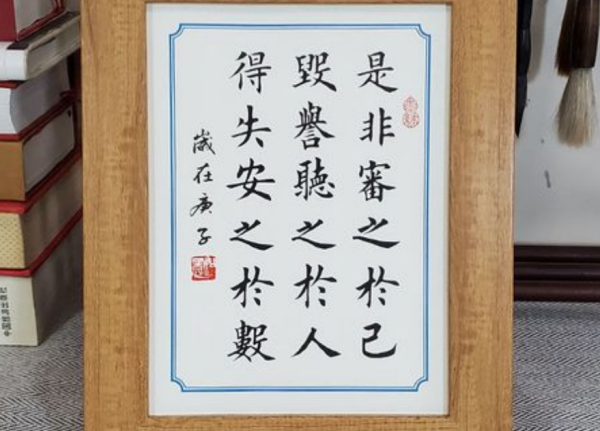 是非審之於己
毀譽聽之於人
得失安之於數
歲在庚子